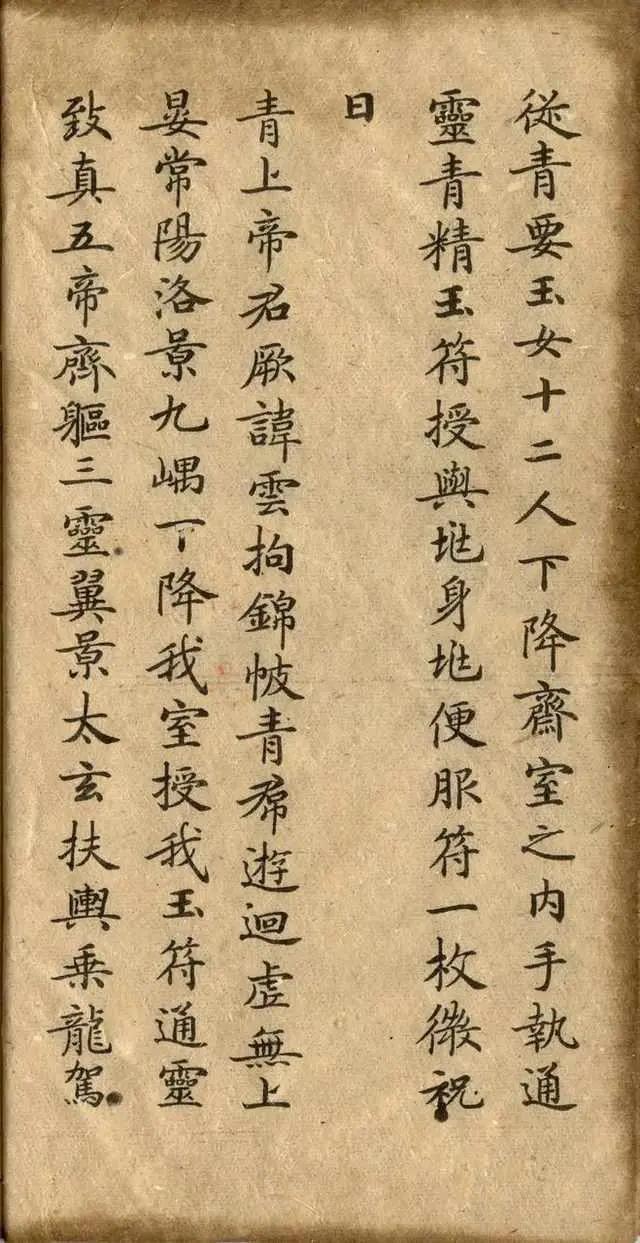 從青要玉女十二人下降齋室之内手執通
靈青精玉符授與兆身兆便服符一枚微祝
曰
青上帝君厥諱雲拘錦帔青帬遊迴虛無上
晏常陽洛景九嵎下降我室授我玉符通靈
致真五帝齊軀三靈翼景太玄扶輿乗龍駕